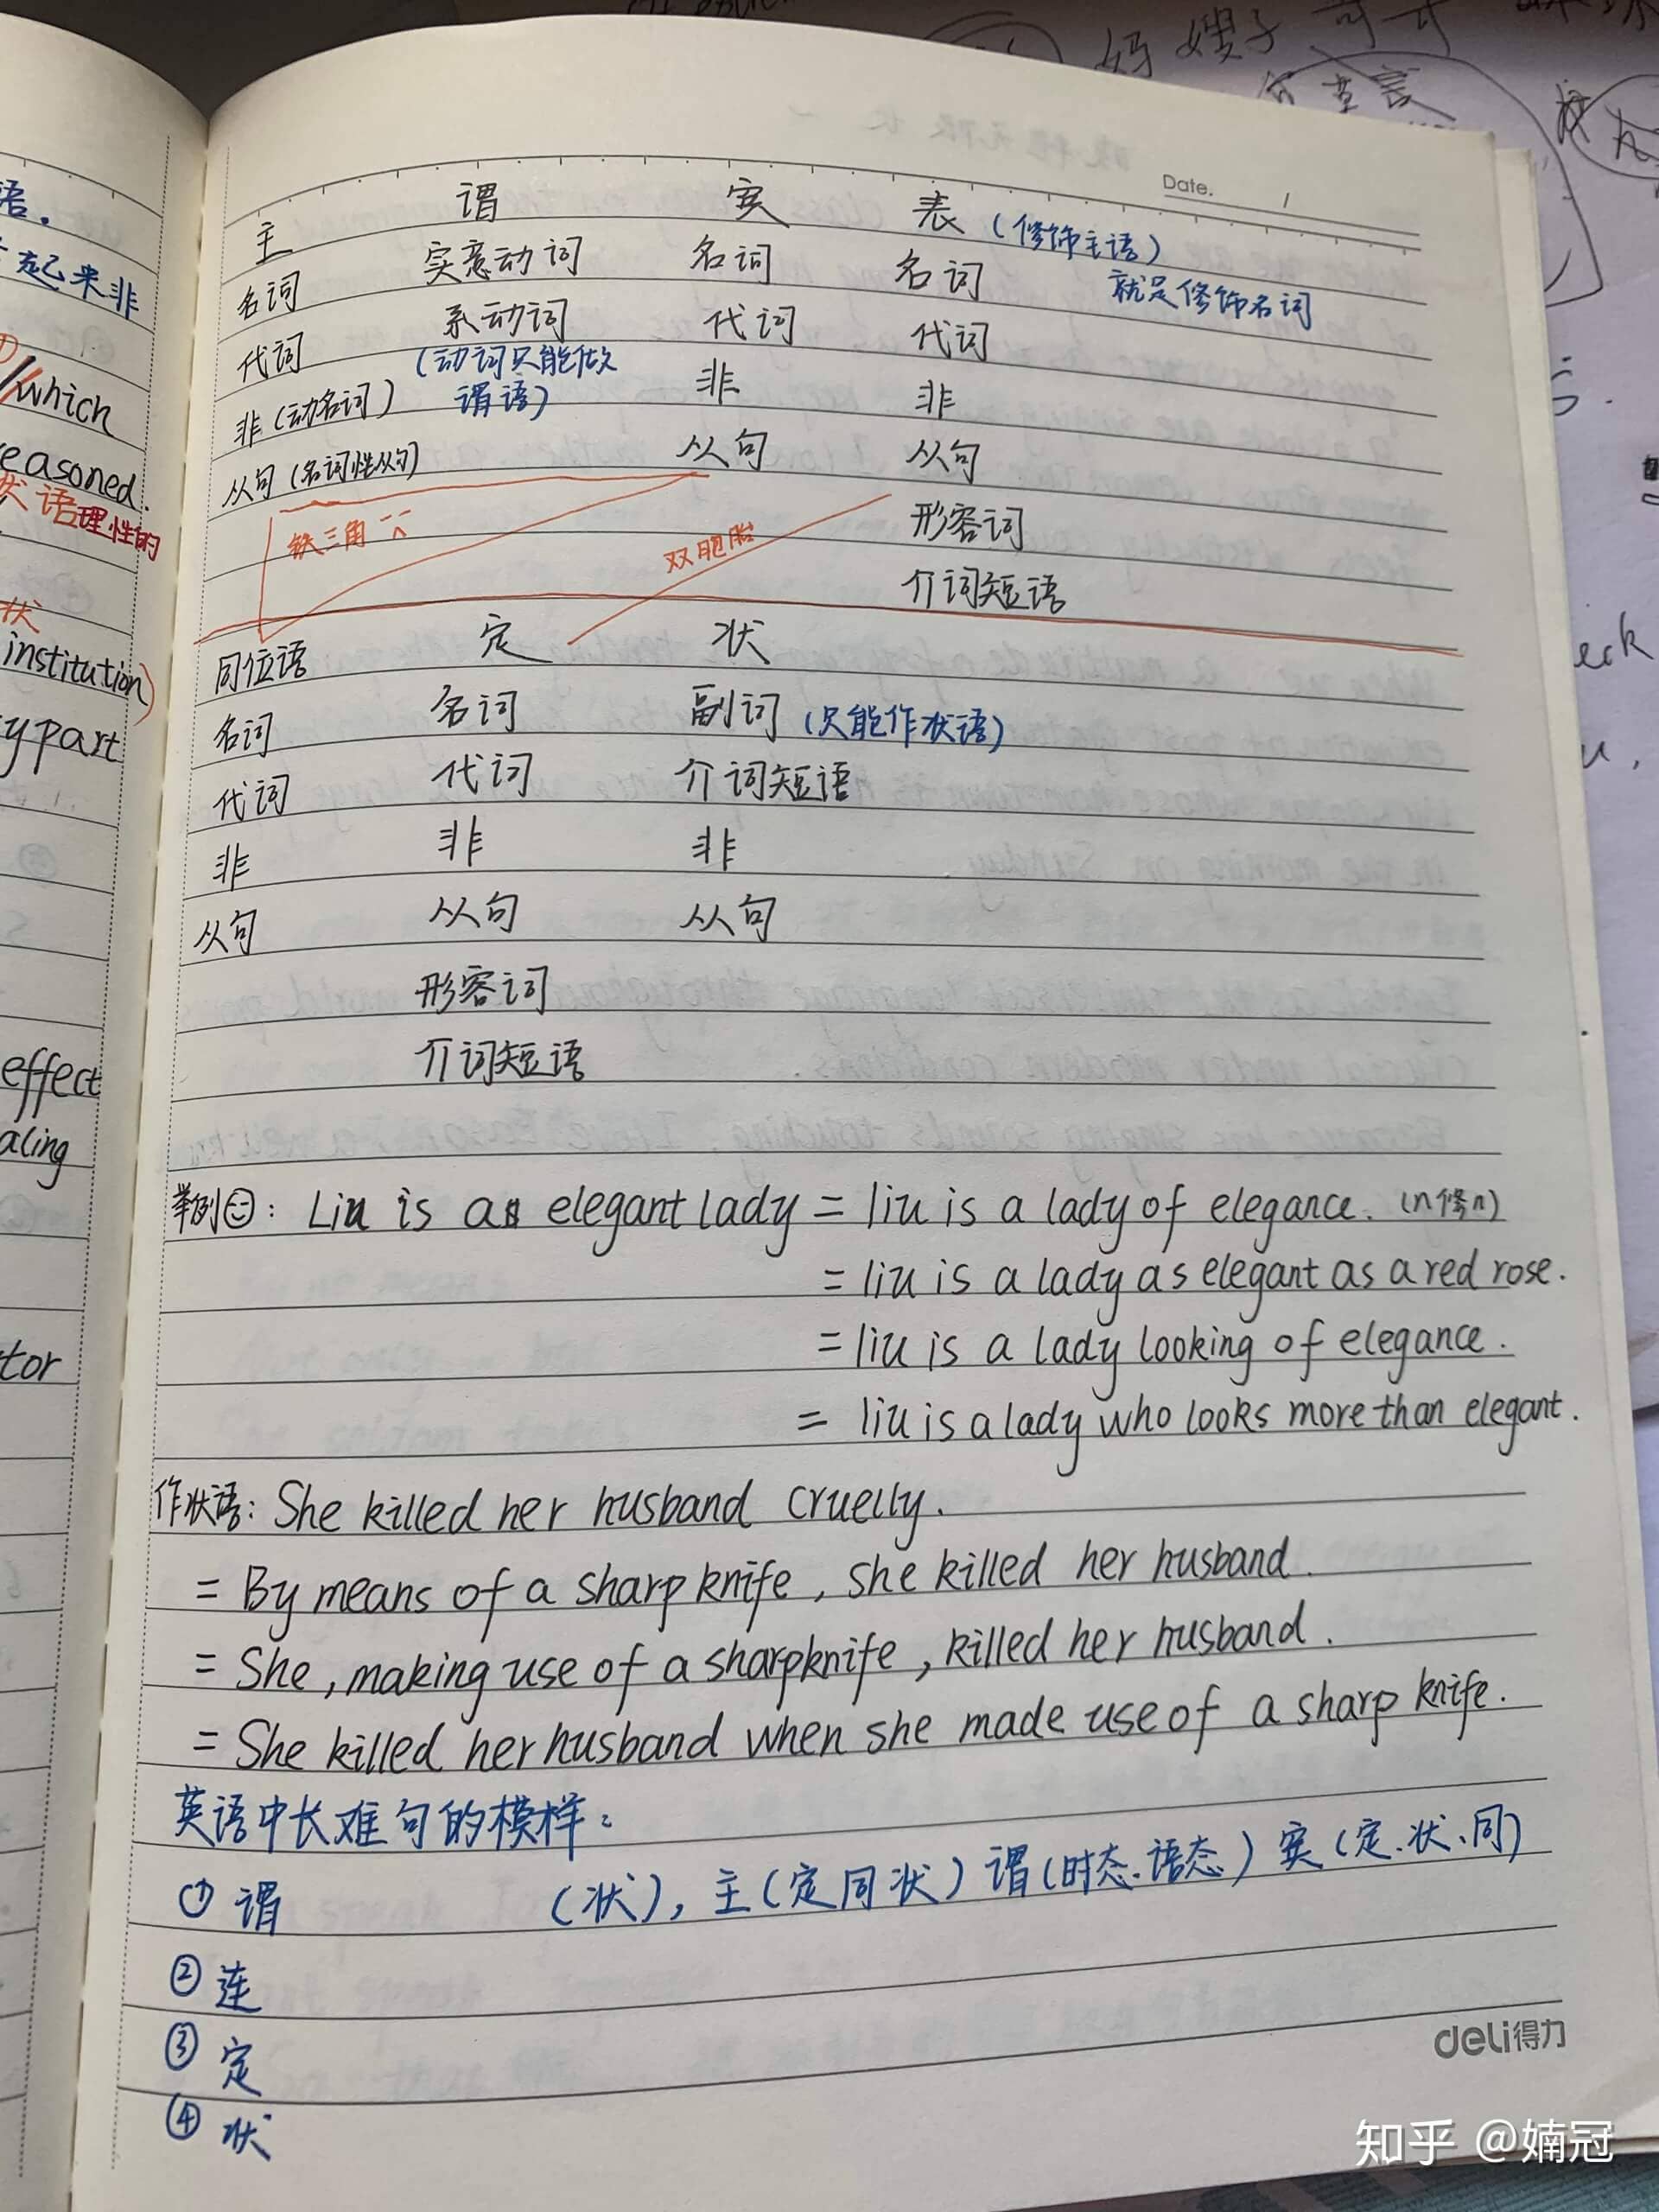 Date. /
主 谓 宾 表（修饰主语）
名词 实意动词 名词 名词 就是修饰名词
代词 系动词 代词 代词
非（动名词） （动词只能做谓语） 非 非
从句（名词性从句） 从句 从句
铁三角 双胞胎 形容词
介词短语
同位语 定 状
名词 名词 副词（只能作状语）
代词 代词 介词短语
非 非 非
从句 从句 从句
形容词
介词短语
举例: Liu is an elegant lady = liu is a lady of elegance. (n修n)
= liu is a lady as elegant as a red rose.
= liu is a lady looking of elegance.
= liu is a lady who looks more than elegant.
作状语: She killed her husband cruelly.
= By means of a sharp knife, she killed her husband.
= She, making use of a sharp knife, killed her husband.
= She killed her husband when she made use of a sharp knife.
英语中长难句的模样：
① 谓 （状），主（定同状）谓（时态、语态）宾（定、状、同）
② 连
③ 定
④ 状
deli得力
知乎 @婻冠
语。
起来非
which
easoned.
状语理性的
状
institution)
y part
effect
aling
tor
妈 嫂子 可可
eck
u,